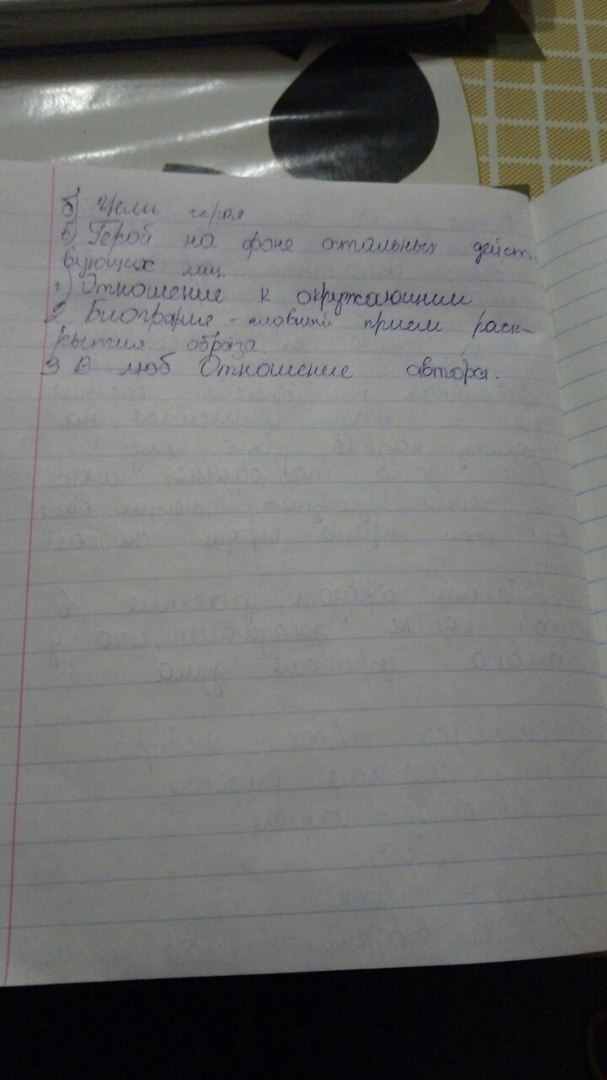 б) Цели героя
в) Герой на фоне отальных дейст
вующих лиц.
г) Отношение к окружающим
2 Биография - главный прием раск-
рытия образа.
3 В люб Отношение автора.